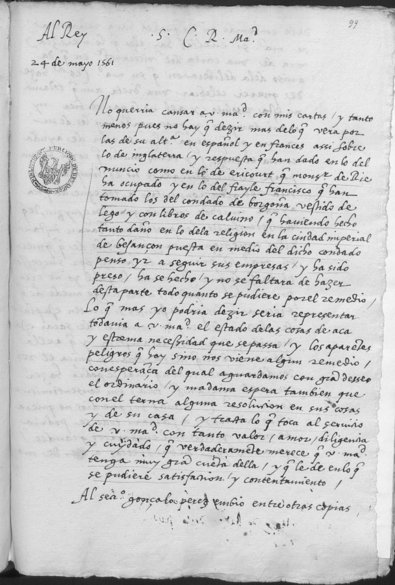 99
Al Rey
S. C. R. Ma.d
24 de mayo 1561
No querria cansar a v ma.d con mis cartas / y tanto
menos pues no hay q dezir mas delo q vera por
las de su alt.a en español y en frances assi sobre
lo de inglaterra / y respuesta q han dado en lo del
nuncio como en lo de ericourt q mons.r de Rie
ha ocupado y en lo del frayle francisco q han
tomado los del condado de borgoña vestido de
lego / y con libros de calvino / q haviendo hecho
tanto daño en lo dela religion en la ciudad imperial
de besançon puesta en medio del dicho condado
penso yr a seguir sus empresas / y ha sido
preso / ha se hecho / y no se faltara de hazer
desta parte todo quanto se pudiere por el remedio
Lo q mas yo podria dezir seria representar
todavia a v ma.d el estado delas cosas de aca
y estrema necessidad que se passa / y los aparentes
peligros q hay sino nos viene algun remedio /
con esperança del qual aguardamos con gran desseo
el ordinario / y madama espera tambien que
con el terna alguna resolucion en sus cosas
y de su casa / y trata lo q toca al servicio
de v ma.d con tanto valor / amor / diligencia
y cuydado / q verdaderamente merece q v ma.d
tenga muy gran cuenta della / y q le de en lo q
se pudiere satisfacion y contentamiento /
Al secr.o gonçalo perez embio entre otras copias